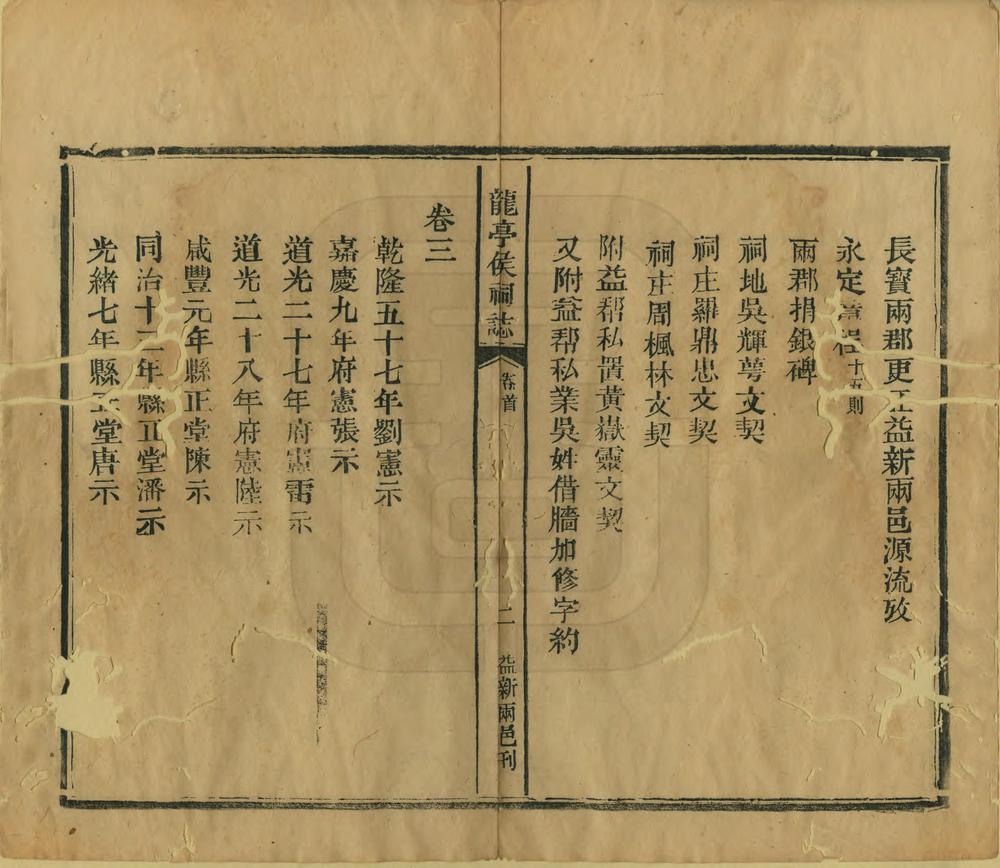 長寶兩郡更正益新兩邑源流攷
永定章程十五則
兩郡捐銀碑
祠地吳輝萼文契
祠庄羅鼎忠文契
祠庄周楓林文契
附益帮私置黃嶽靈文契
又附益帮私業吳姓借牆加修字約
龍亭侯祠誌
卷首
二
益新兩邑刊
卷三
乾隆五十七年劉憲示
嘉慶九年府憲張示
道光二十七年府憲雷示
道光二十八年府憲陸示
咸豐元年縣正堂陳示
同治十二年縣正堂潘示
光緒七年縣正堂唐示